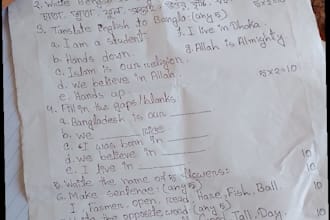 2. Write
3. Translate English to Bangla: (any 5)
a. I am a student. f. I live in Dhaka.
b. Hands down. g. Allah is Almighty.
c. Islam is our religion.
d. we believe in Allah. ৫x২=10
e. Hands up.
4. Fill in the gaps/blanks
a. Bangladesh is our
b. we rice
c. I was born in
d. we believe in
e. I live in
5. Write the name of ৫ flowers: 10
6. Make sentence: (any ৫) 10
I, Farmer, open, read, Fish, Ball. 10
opposite word Tall, Day.